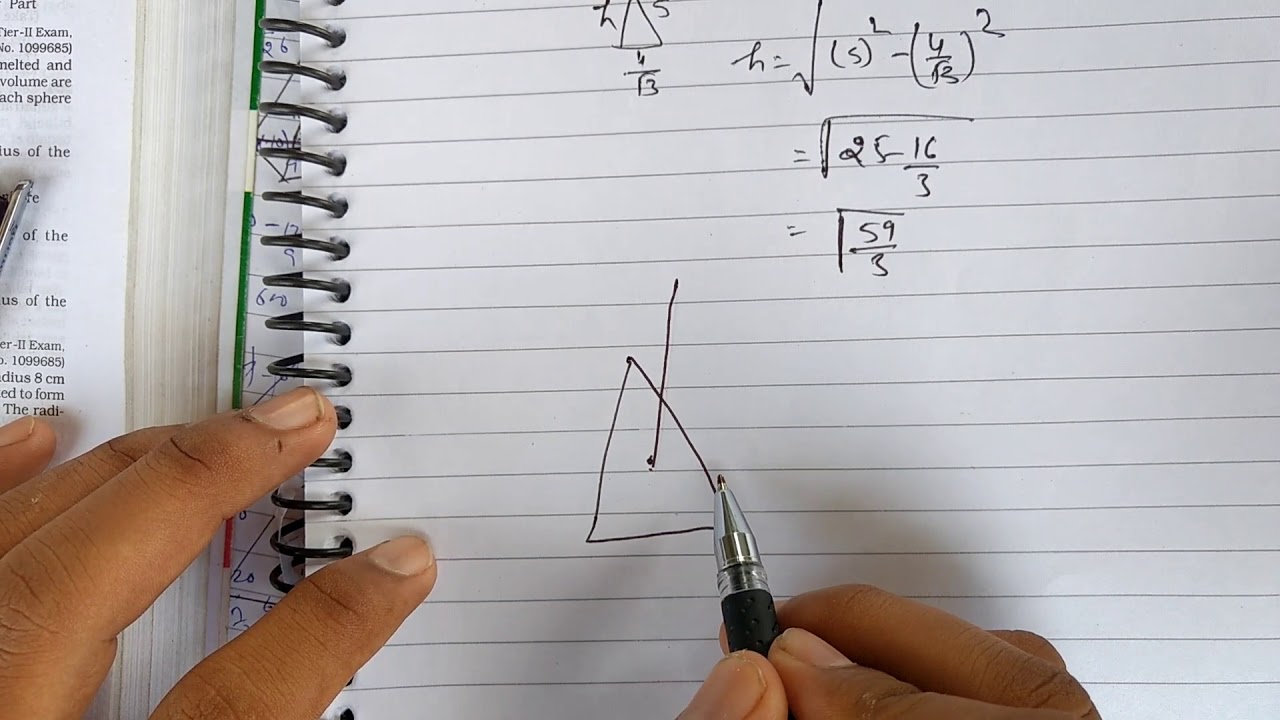 Part
Tier-II Exam,
No. 1099685)
melted and
volume are
ach sphere
ius of the
re
of the
us of the
er-II Exam,
o. 1099685)
dius 8 cm
ted to form
The radi-
26
9
600
20
h 5
4/√3
h = √(5)² - (4/√3)²
= √25 - 16/3
= √59/3